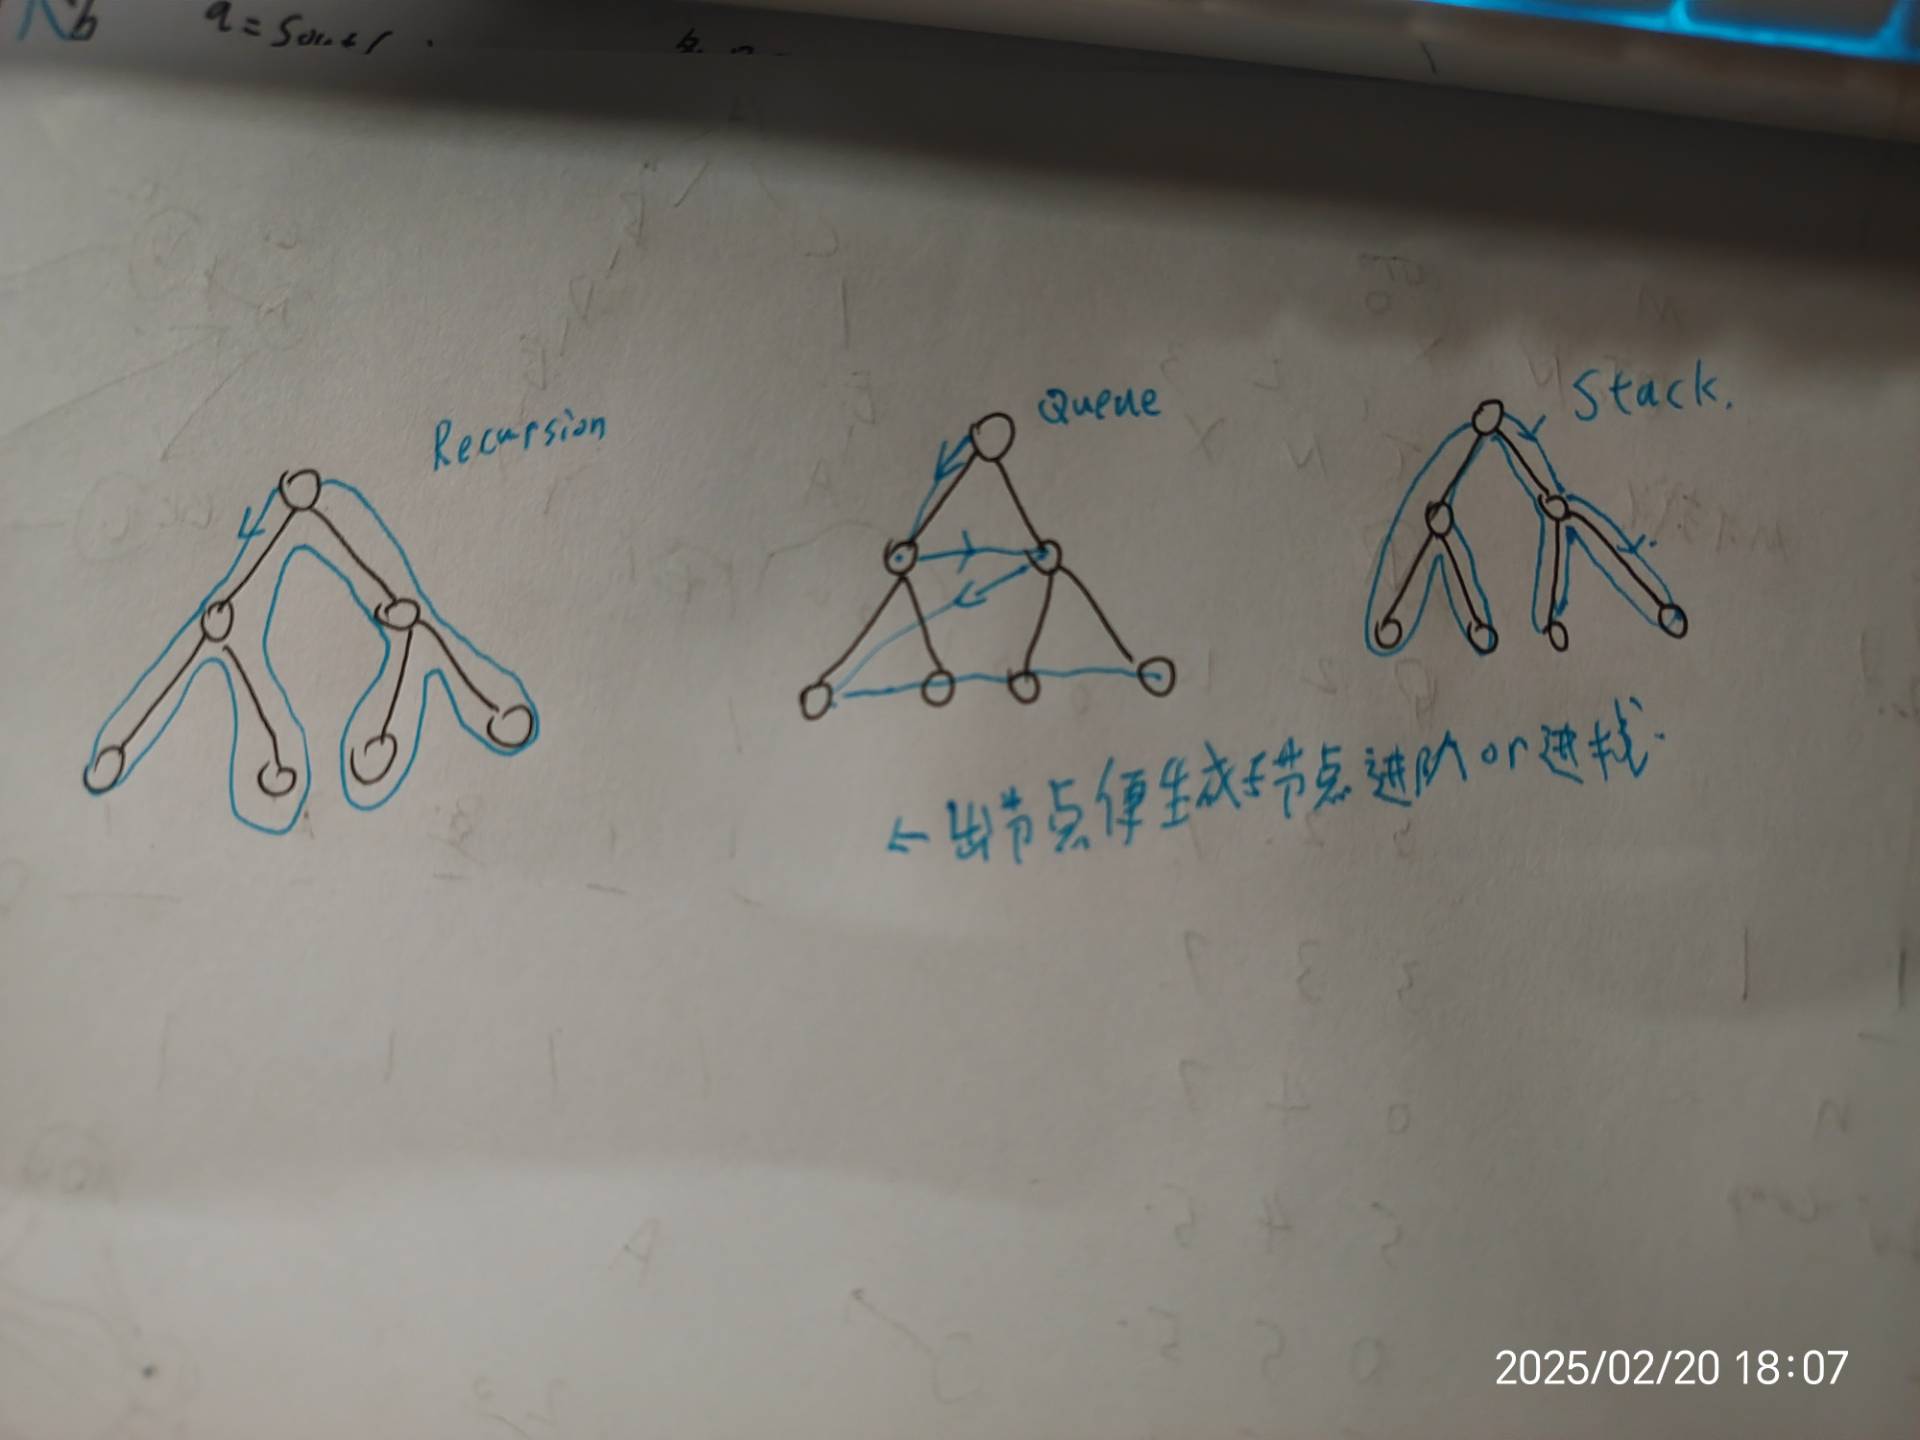 a =
Recursion
Queue
Stack.
← 出节点便生成子节点进队 or 进栈.
2025/02/20 18:07